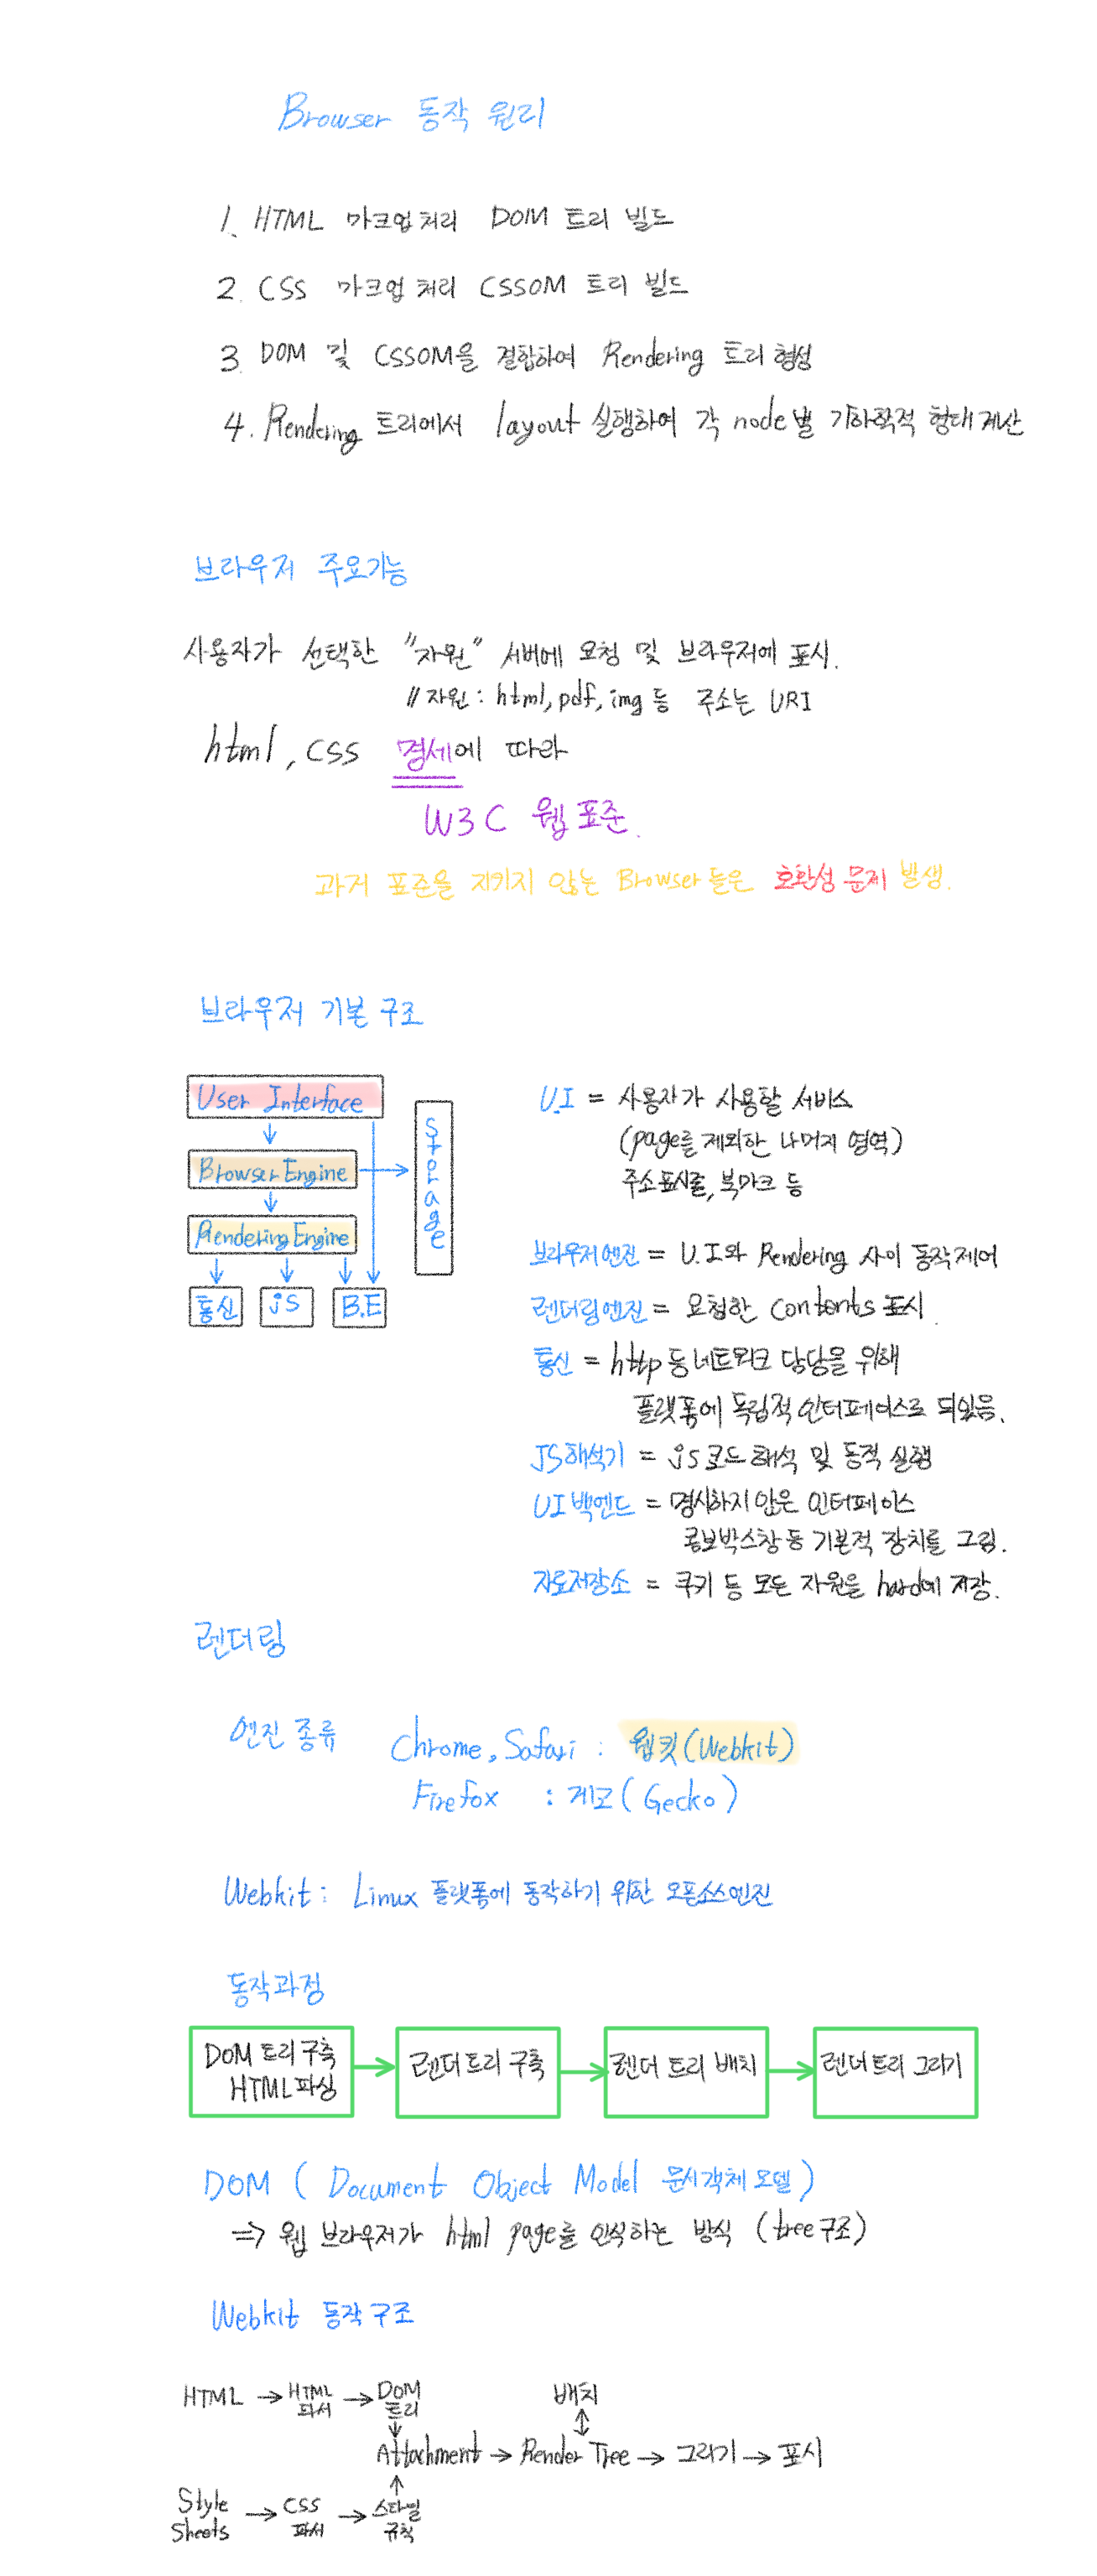 Browser 동작 원리
1. HTML 마크업 처리 DOM 트리 빌드
2. CSS 마크업 처리 CSSOM 트리 빌드
3. DOM 및 CSSOM을 결합하여 Rendering 트리 형성
4. Rendering 트리에서 layout 실행하여 각 node별 기하학적 형태 계산
브라우저 주요기능
사용자가 선택한 "자원" 서버에 요청 및 브라우저에 표시.
// 자원 : html, pdf, img 등 주소는 URI
html, css 명세에 따라
W3C 웹 표준.
과거 표준을 지키지 않는 Browser 들은 호환성 문제 발생.
브라우저 기본 구조
User Interface
Browser Engine
Rendering Engine
통신 js B.E
Storage
U.I = 사용자가 사용할 서비스
(page를 제외한 나머지 영역)
주소표시줄, 북마크 등
브라우저엔진 = U.I와 Rendering 사이 동작제어
렌더링엔진 = 요청한 contents 표시.
통신 = http 등 네트워크 담당을 위해
플랫폼에 독립적 인터페이스로 되있음.
JS해석기 = js코드 해석 및 동적 실행
UI백엔드 = 명시하지 않은 인터페이스
콤보박스창 등 기본적 장치를 그림.
자료저장소 = 쿠키 등 모든 자원을 hard에 저장.
렌더링
엔진 종류 Chrome, Safari : 웹킷(Webkit)
Firefox : 게코(Gecko)
Webkit : Linux 플랫폼에 동작하기 위한 오픈소스엔진
동작과정
DOM 트리 구축
HTML 파싱
렌더트리 구축
렌더 트리 배치
렌더트리 그리기
DOM ( Document Object Model 문서객체 모델 )
=> 웹 브라우저가 html page를 인식하는 방식 (tree구조)
Webkit 동작구조
HTML → HTML 파서 → DOM 트리
배치
Attachment → Render Tree → 그리기 → 표시
Style Sheets → CSS 파서 → 스타일 규칙